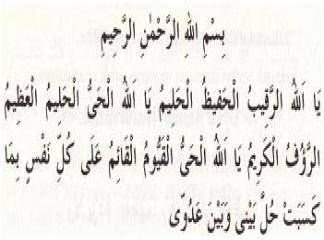 بِسْمِ اللهِ الرَّحْمٰنِ الرَّحِيْمِ
يَا اَللهُ الرَّقِيْبُ الْحَفِيْظُ الْحَلِيْمُ يَا اَللهُ الْحَىُّ الْحَلِيْمُ الْعَظِيْمُ
الرَّؤُفُ الْكَرِيْمُ يَا اَللهُ الْحَىُّ الْقَيُّوْمُ الْقَائِمُ عَلٰى كُلِّ نَفْسٍ بِمَا
كَسَبَتْ حُلْ بَيْنِىْ وَبَيْنَ عَدُوِّىْ